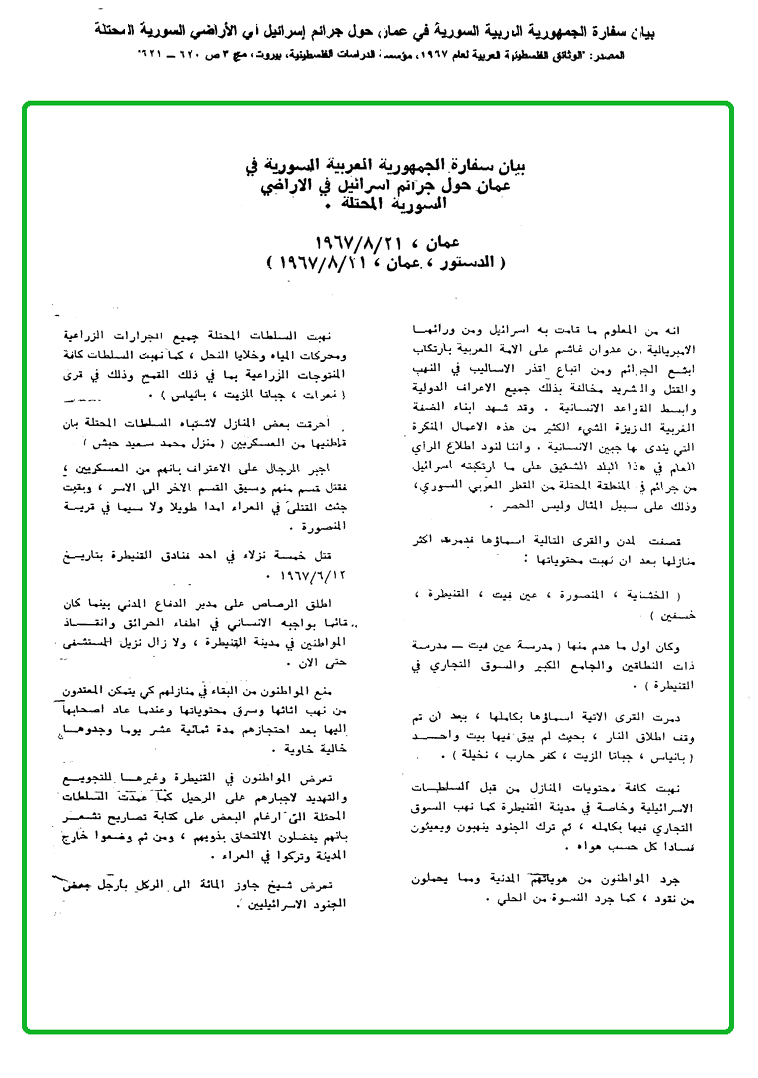 بيان سفارة الجمهورية العربية السورية في عمان حول جرائم إسرائيل في الأراضي السورية المحتلة
المصدر: "الوثائق الفلسطينية العربية لعام ١٩٦٧، مؤسسة الدراسات الفلسطينية، بيروت، مج ٣ ص ٦٢٠ – ٦٢١"
بيان سفارة الجمهورية العربية السورية في
عمان حول جرائم اسرائيل في الاراضي
السورية المحتلة .
عمان ، ١٩٦٧/٨/٢١
( الدستور ، عمان ، ١٩٦٧/٨/٢١ )
انه من المعلوم ما قامت به اسرائيل ومن ورائها
الامبريالية من عدوان غاشم على الامة العربية بارتكاب
ابشع الجرائم ومن اتباع اقذر الاساليب في النهب
والقتل والتشريد مخالفة بذلك جميع الاعراف الدولية
وابسط القواعد الانسانية . وقد شهد ابناء الضفة
الغربية العزيزة الشيء الكثير من هذه الاعمال المنكرة
التي يندى لها جبين الانسانية . واننا لنود اطلاع الرأي
العام في هذا البلد الشقيق على ما ارتكبته اسرائيل
من جرائم في المنطقة المحتلة من القطر العربي السوري،
وذلك على سبيل المثال وليس الحصر .
قصفت المدن والقرى التالية اسماؤها فدمرت اكثر
منازلها بعد ان نهبت محتوياتها :
( الخشنية ، المنصورة ، عين فيت ، القنيطرة ،
خسفين )
وكان اول ما هدم منها ( مدرسة عين فيت – مدرسة
ذات النطاقين والجامع الكبير والسوق التجاري في
القنيطرة ) .
دمرت القرى الاتية اسماؤها بكاملها ، بعد أن تم
وقف اطلاق النار ، بحيث لم يبق فيها بيت واحد
( بانياس ، جباتا الزيت ، كفر حارب ، نخيلة ) .
نهبت كافة محتويات المنازل من قبل السلطات
الاسرائيلية وخاصة في مدينة القنيطرة كما نهب السوق
التجاري فيها بكامله ، ثم ترك الجنود ينهبون ويعيثون
فسادا كل حسب هواه .
جرد المواطنون من هوياتهم المدنية ومما يحملون
من نقود ، كما جرد النسوة من الحلي .
نهبت السلطات المحتلة جميع الجرارات الزراعية
ومحركات المياه وخلايا النحل ، كما نهبت السلطات كافة
المنتوجات الزراعية بما في ذلك القمح وذلك في قرى
( نعرات ، جباتا الزيت ، بانياس ) .
أحرقت بعض المنازل لاشتباه السلطات المحتلة بان
قاطنيها من العسكريين ( منزل محمد سعيد حبش )
اجبر الرجال على الاعتراف بانهم من العسكريين ،
فقتل قسم منهم وسيق القسم الاخر الى الاسر ، وبقيت
جثث القتلى في العراء امدا طويلا ولا سيما في قرية
المنصورة .
قتل خمسة نزلاء في احد فنادق القنيطرة بتاريخ
١٩٦٧/٦/١٢ .
اطلق الرصاص على مدير الدفاع المدني بينما كان
قائما بواجبه الانساني في اطفاء الحرائق وانقاذ
المواطنين في مدينة القنيطرة ، ولا زال نزيل المستشفى
حتى الان .
منع المواطنون من البقاء في منازلهم كي يتمكن المعتدون
من نهب اثاثها وسرق محتوياتها وعندما عاد اصحابها
إليها بعد احتجازهم مدة ثمانية عشر يوما وجدوها
خالية خاوية .
تعرض المواطنون في القنيطرة وغيرها للتجويع
والتهديد لاجبارهم على الرحيل كما عمدت السلطات
المحتلة الى ارغام البعض على كتابة تصاريح تشعر
بانهم يفضلون الالتحاق بذويهم ، ومن ثم وضعوا خارج
المدينة وتركوا في العراء .
تعرض شيخ جاوز المائة الى الركل بأرجل بعض
الجنود الاسرائيليين .